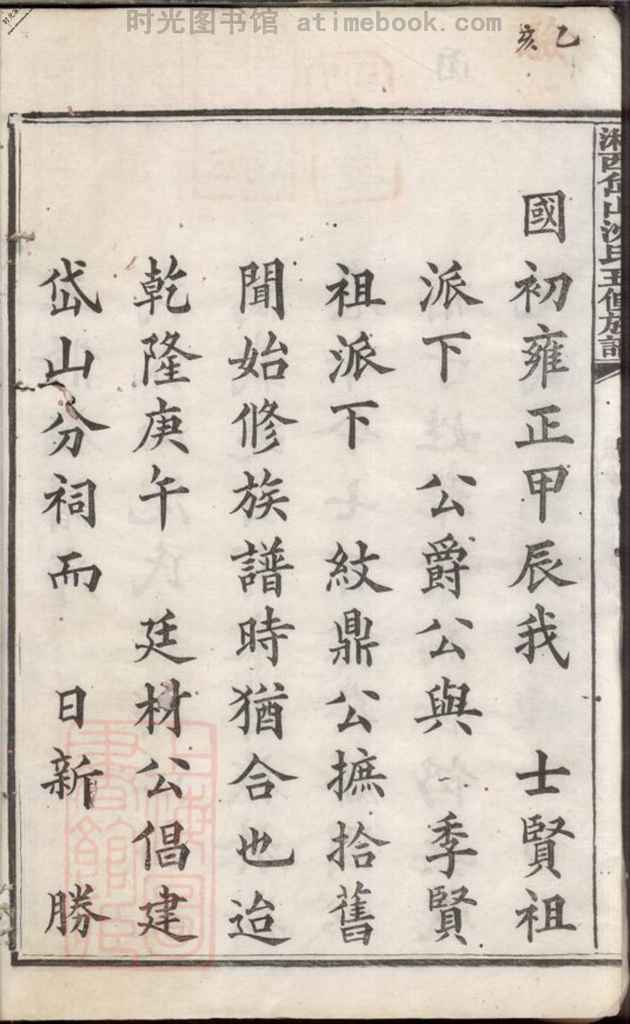 时光图书馆 atimebook.com
乙亥
國初雍正甲辰我 士賢祖
派下 公爵公與 季賢
祖派下 紋鼎公摭拾舊
聞始修族譜時猶合也迨
乾隆庚午 廷材公倡建
岱山分祠而 日新 勝